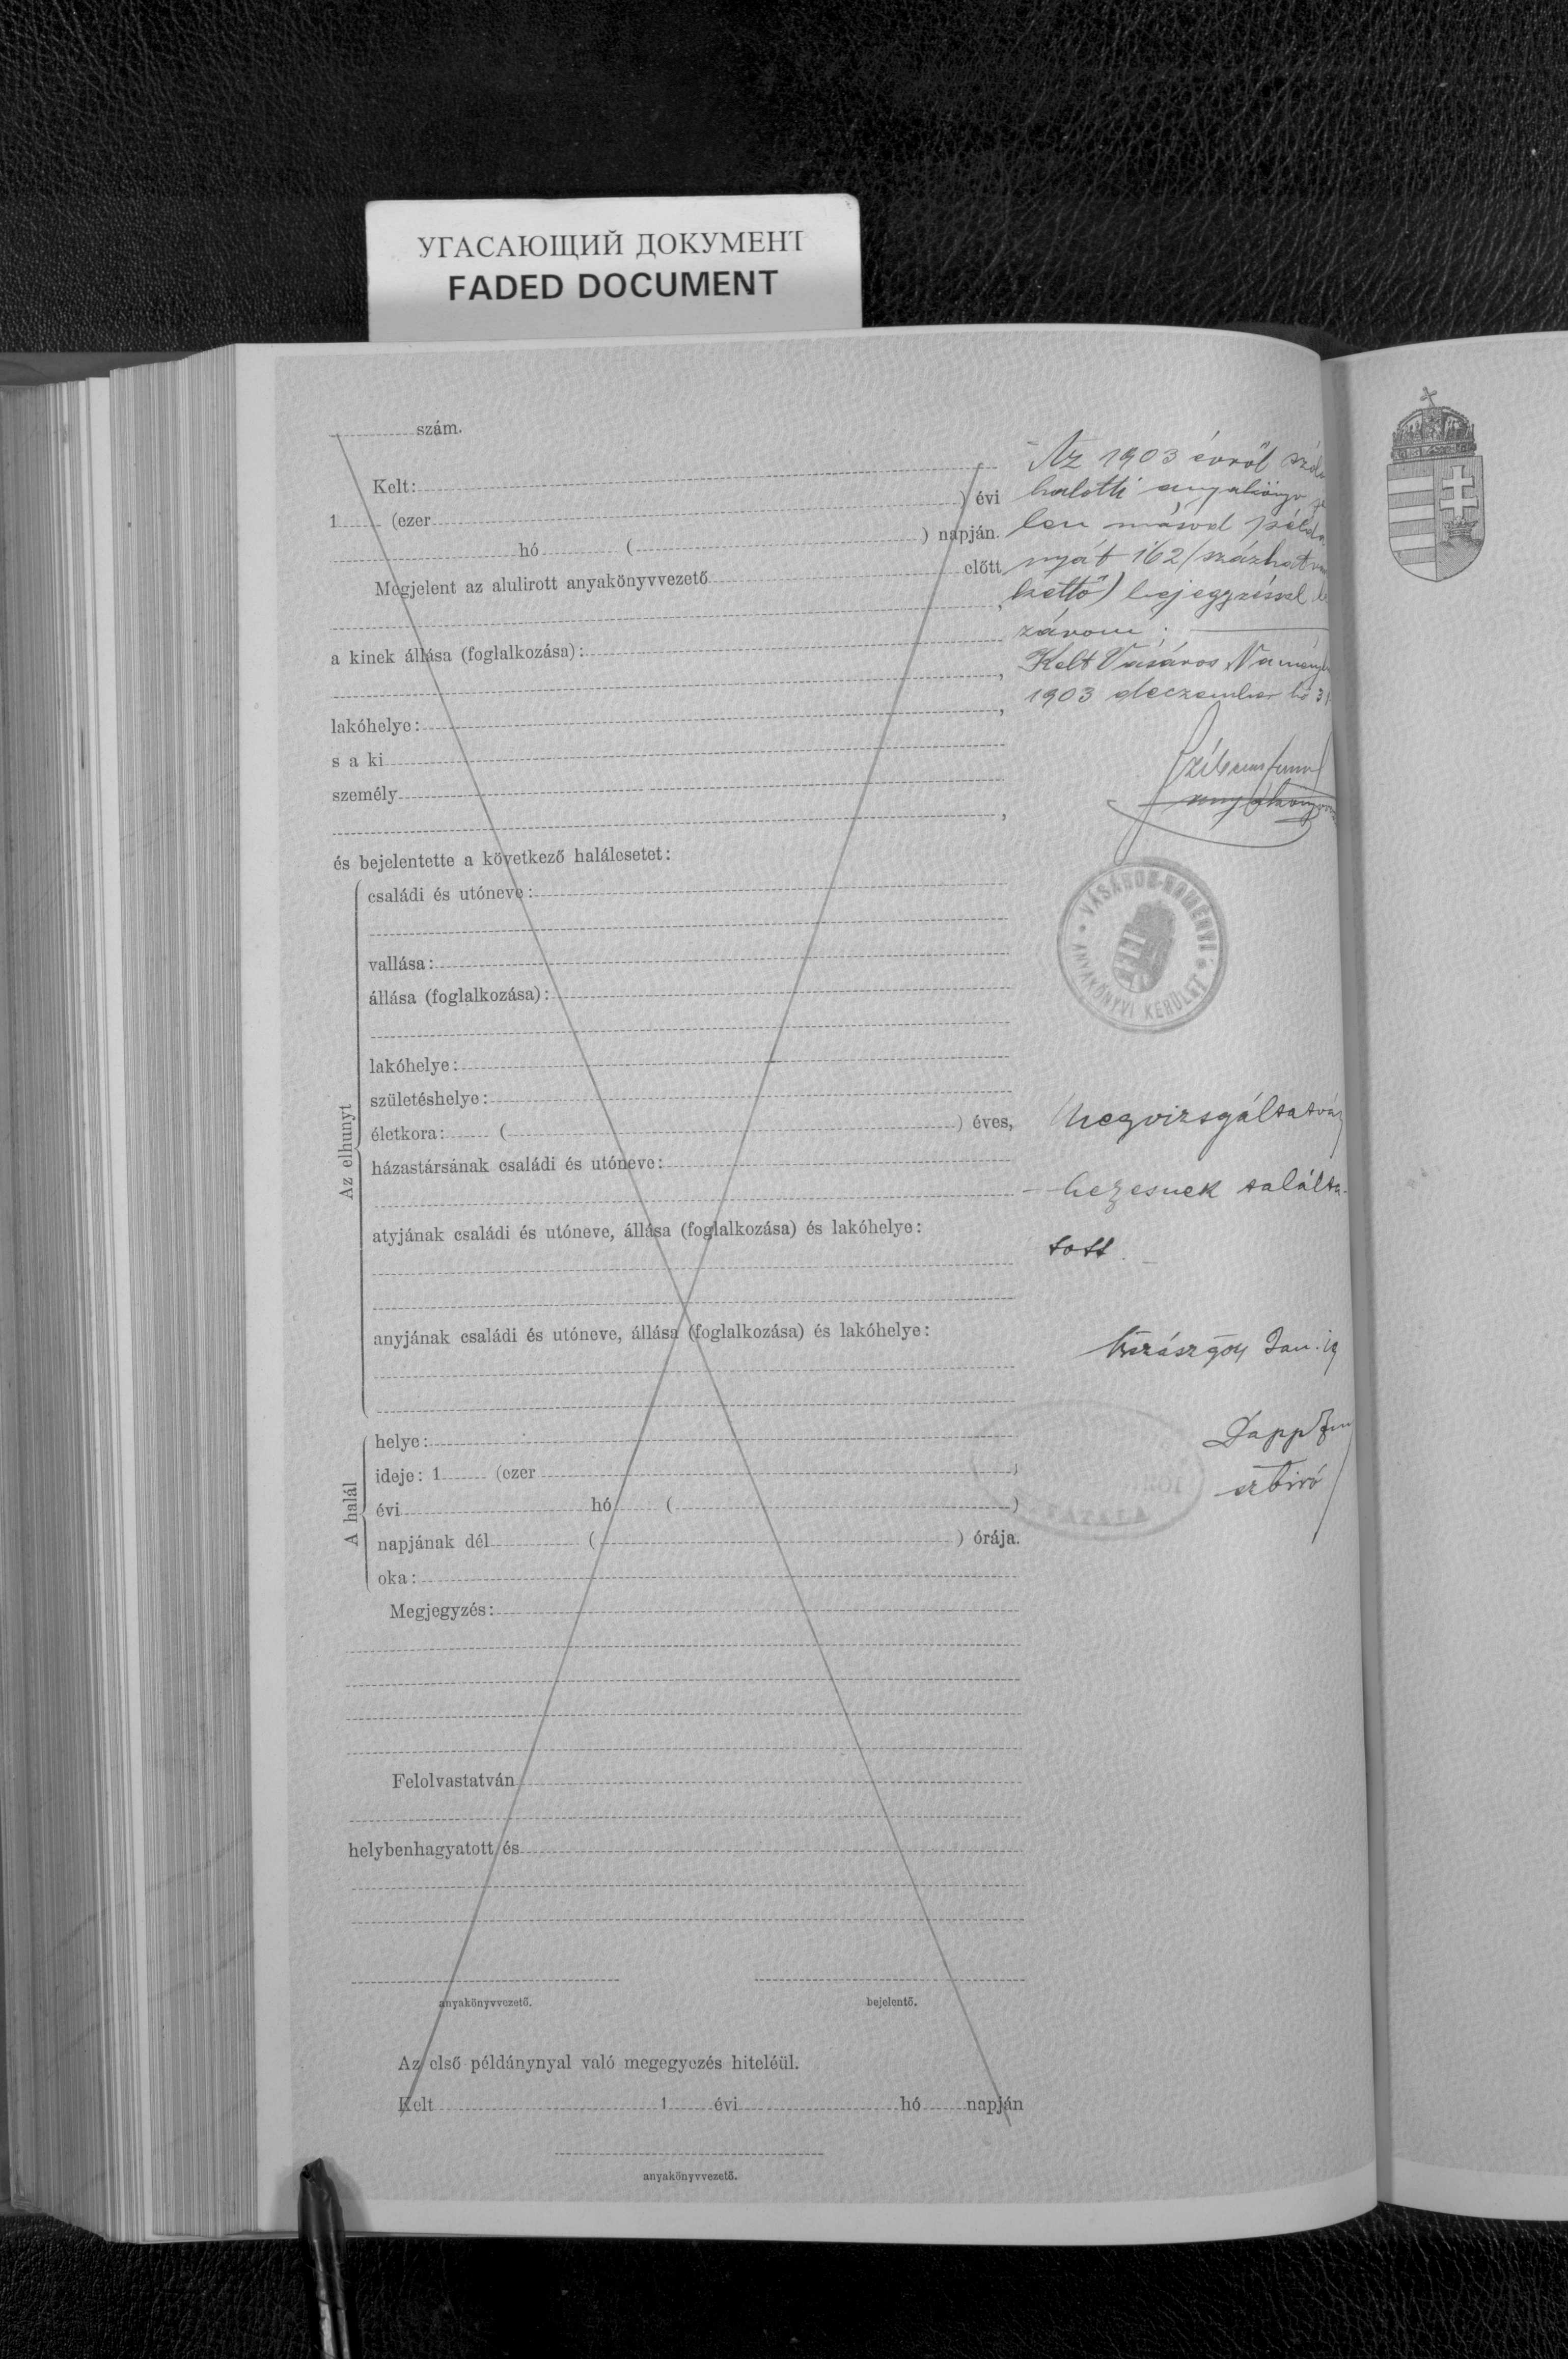 УГАСАЮЩИЙ ДОКУМЕНТ
FADED DOCUMENT
szám.
Kelt:
1 (ezer ) évi
hó ( ) napján.
Megjelent az alulirott anyakönyvvezető előtt
,
a kinek állása (foglalkozása):
,
lakóhelye: ,
s a ki
személy
,
és bejelentette a következő halálesetet:
Az elhunyt
családi és utóneve:
vallása:
állása (foglalkozása):
lakóhelye:
születéshelye:
életkora: ( ) éves,
házastársának családi és utóneve:
atyjának családi és utóneve, állása (foglalkozása) és lakóhelye:
anyjának családi és utóneve, állása (foglalkozása) és lakóhelye:
A halál
helye:
ideje: 1 (ezer )
évi hó ( )
napjának dél ( ) órája.
oka:
Megjegyzés:
Felolvastatván
helybenhagyatott és
anyakönyvvezető. bejelentő.
Az első példánynyal való megegyezés hiteléül.
Kelt 1 évi hó napján
anyakönyvvezető.
Az 1903 évről
halotti anyakönyv
len másod példá
nyát 162 (százhatvan
kettő) bejegyzéssel le
zárom;
Kelt Vásáros Namény
1903 deczember hó 31
VÁSÁROS-NAMÉNYI
ANYAKÖNYVI KERÜLET
Megvizsgáltatván
helyesnek találta-
tott.
Jan. 19
Papp
szbiró